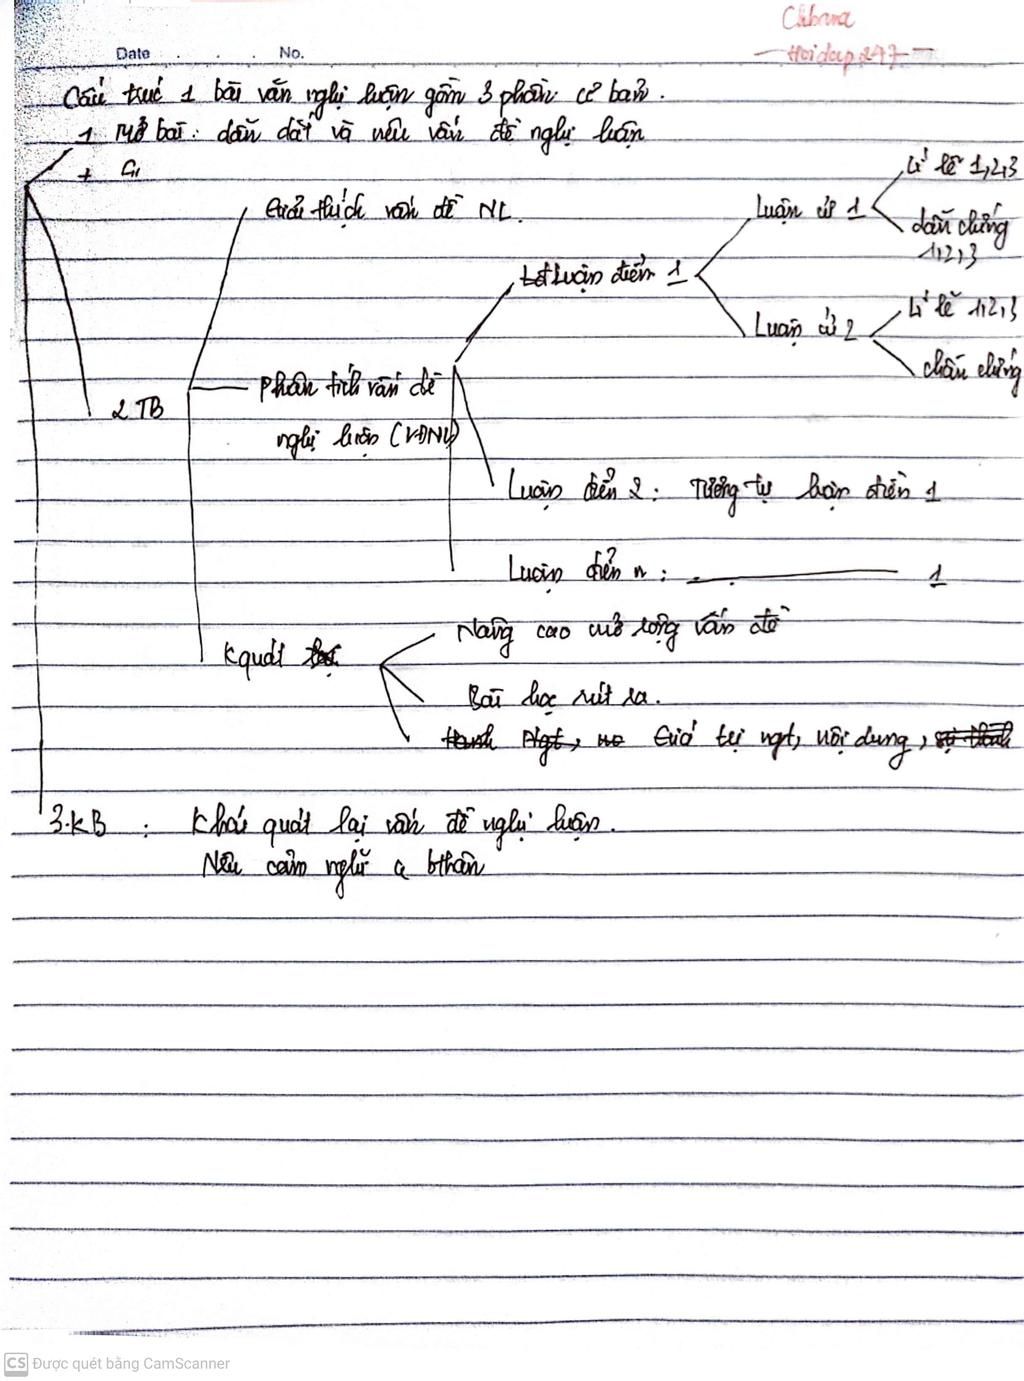 Chbrwa
Hoidap247
Date . . . No.
Cấu trúc 1 bài văn nghị luận gồm 3 phần cơ bản.
1 Mở bài: dẫn dắt và nêu vấn đề nghị luận
+ G
Lí lẽ 1,2,3
Giải thích vấn đề NL.
Luận cứ 1
dẫn chứng
1,2,3
Luận điểm 1
Lí lẽ 1,2,3
Luận cứ 2
chứng
Phân tích vấn đề
2 TB
nghị luận (VĐNL)
Luận điểm 2: Tương tự luận điểm 1
Luận điểm n: 1
Nâng cao mở rộng vấn đề
Kquát
Bài học rút ra.
Giá trị ngt, nội dung,
3.KB : Khái quát lại vấn đề nghị luận.
Nêu cảm nghĩ c̉ bthân
CS Được quét bằng CamScanner